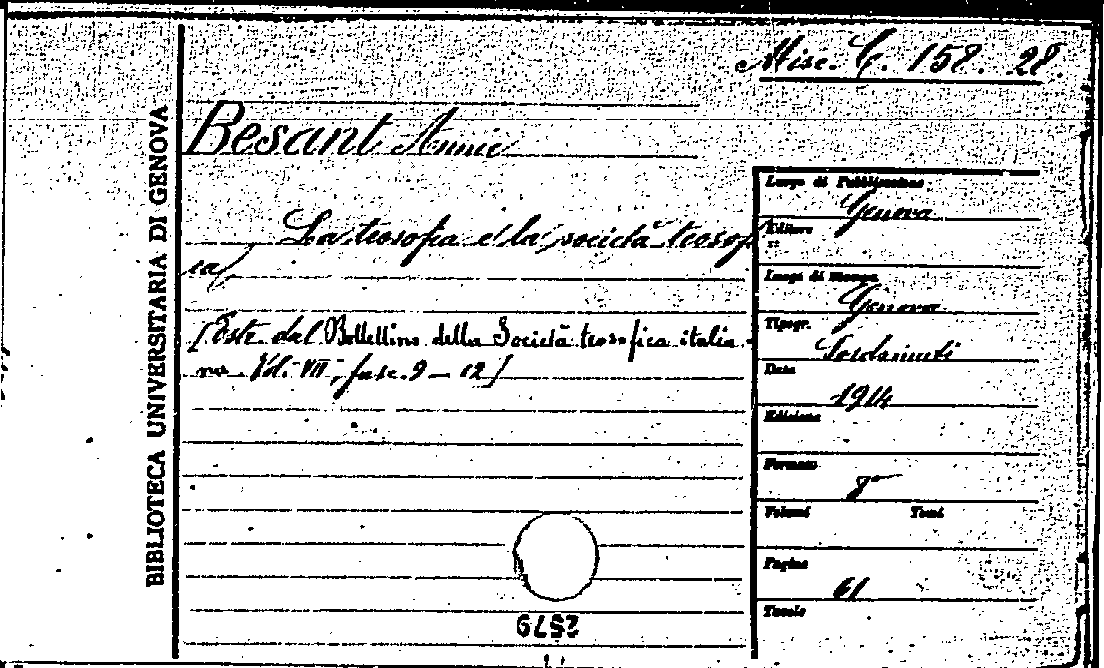 Misc. C. 158. 28.
BIBLIOTECA UNIVERSITARIA DI GENOVA
Besant Annie
La teosofia e la società teosof
ica
[Estr. dal Bollettino della Società teosofica italia-
na. Vol. VII, fasc. 9 - 12]
Luogo di Pubblicazione
Genova
Editore
Luogo di Stampa
Genova
Tipogr.
Data
1914
Edizione
Formato
8°
Volumi Tomi
Pagine
61
Tavole
2579